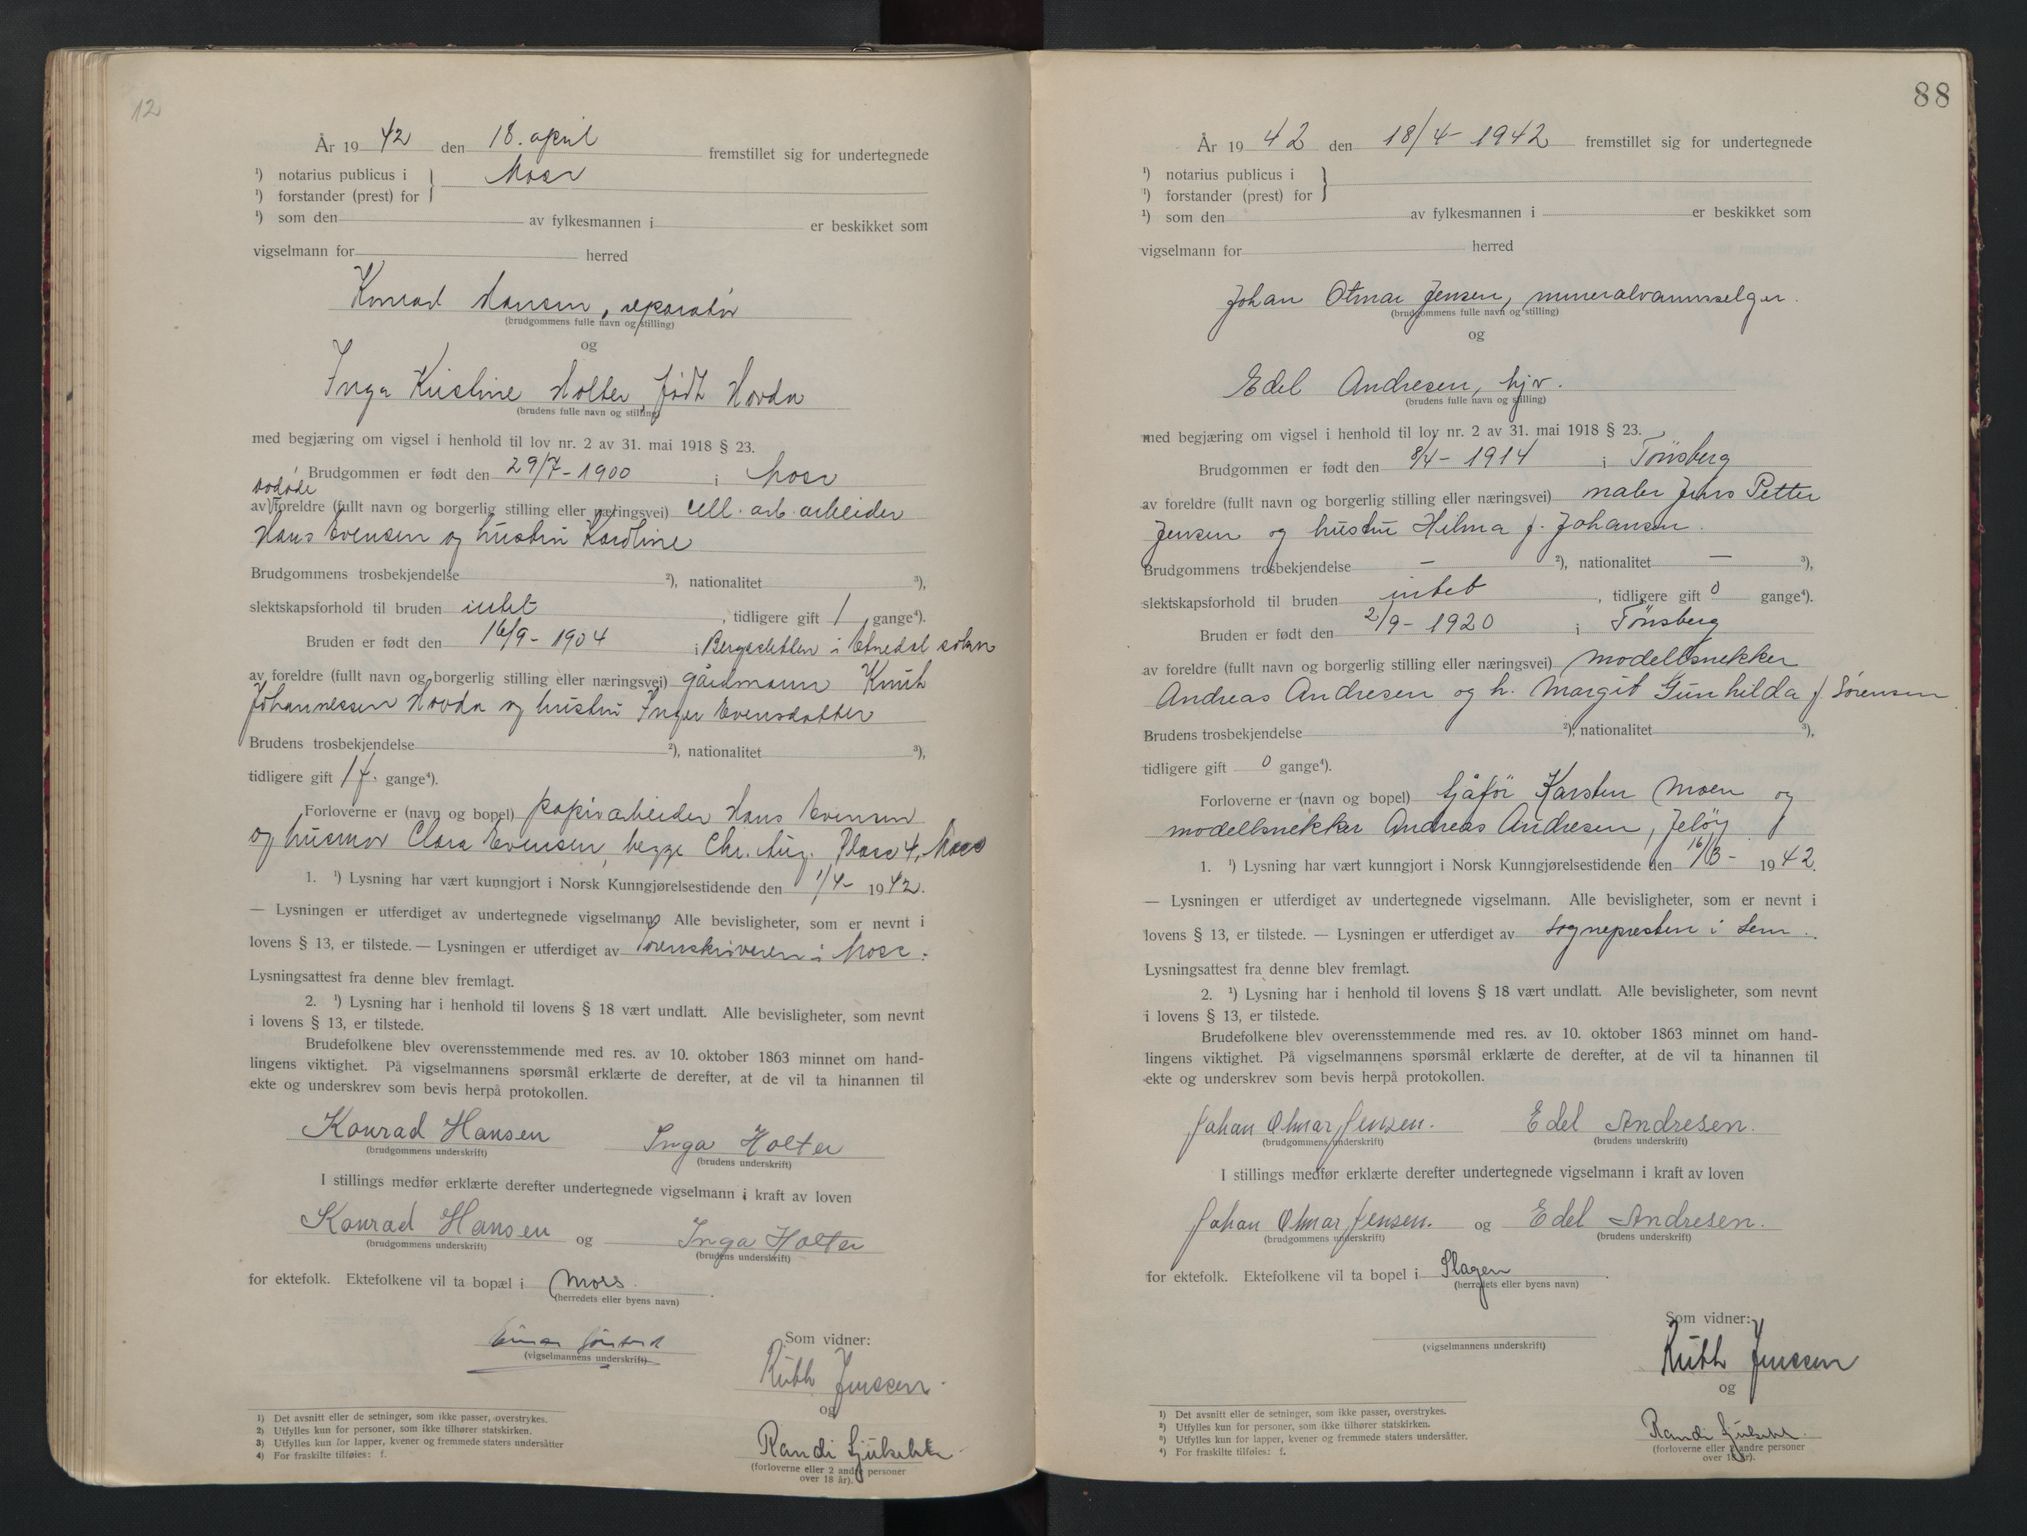 12
År 19 42 den 18. april fremstillet sig for undertegnede
¹) notarius publicus i } Moss
¹) forstander (prest) for
¹) som den av fylkesmannen i er beskikket som
vigselmann for herred
Konrad Hansen, reparatør
(brudgommens fulle navn og stilling)
og
Inga Kristine Holter, født Hovda
(brudens fulle navn og stilling)
med begjæring om vigsel i henhold til lov nr. 2 av 31. mai 1918 § 23.
Brudgommen er født den 29/7-1900 i Moss
av foreldre (fullt navn og borgerlig stilling eller næringsvei) cell. arb. arbeider
Hans Evensen og hustru Karoline
Brudgommens trosbekjendelse ²), nationalitet ³),
slektskapsforhold til bruden intet, tidligere gift 1 gange⁴).
Bruden er født den 16/9-1904 i Etnedal
av foreldre (fullt navn og borgerlig stilling eller næringsvei) gårdmann Knut
Johannessen Hovda og hustru Inger Evensdatter
Brudens trosbekjendelse ²), nationalitet ³),
tidligere gift 1 f. gange⁴).
Forloverne er (navn og bopel) papirarbeider Hans Evensen
og husmor Clara Evensen, begge Chr. Aug. Plass 4, Moss
1. ¹) Lysning har vært kunngjort i Norsk Kunngjørelsestidende den 1/4- 1942.
— Lysningen er utferdiget av undertegnede vigselmann. Alle bevisligheter, som er nevnt i
lovens § 13, er tilstede. — Lysningen er utferdiget av Sorenskriveren i Moss.
Lysningsattest fra denne blev fremlagt.
2. ¹) Lysning har i henhold til lovens § 18 vært undlatt. Alle bevisligheter, som nevnt
i lovens § 13, er tilstede.
Brudefolkene blev overensstemmende med res. av 10. oktober 1863 minnet om hand-
lingens viktighet. På vigselmannens spørsmål erklærte de derefter, at de vil ta hinannen til
ekte og underskrev som bevis herpå protokollen.
Konrad Hansen Inga Holter
(brudgommens underskrift) (brudens underskrift)
I stillings medfør erklærte derefter undertegnede vigselmann i kraft av loven
Konrad Hansen og Inga Holter
(brudgommens underskrift) (brudens underskrift)
for ektefolk. Ektefolkene vil ta bopæl i Moss.
(herredets eller byens navn)
(vigselmannens underskrift)
Som vidner:
Ruth Jenssen.
og
Randi
(forloverne eller 2 andre personer
over 18 år).
1) Det avsnitt eller de setninger, som ikke passer, overstrykes.
2) Utfylles kun for personer, som ikke tilhører statskirken.
3) Utfylles kun for lapper, kvener og fremmede staters undersåtter
4) For fraskilte tilføies: f.
88
År 19 42 den 18/4-1942 fremstillet sig for undertegnede
¹) notarius publicus i }
¹) forstander (prest) for
¹) som den av fylkesmannen i er beskikket som
vigselmann for herred
Johan Otmar Jensen, mineralvannsselger.
(brudgommens fulle navn og stilling)
og
Edel Andresen, hjv.
(brudens fulle navn og stilling)
med begjæring om vigsel i henhold til lov nr. 2 av 31. mai 1918 § 23.
Brudgommen er født den 8/4-1914 i Tønsberg
av foreldre (fullt navn og borgerlig stilling eller næringsvei) maler Jens Petter
Jensen og hustru Hilma f. Johansen.
Brudgommens trosbekjendelse — ²), nationalitet — ³),
slektskapsforhold til bruden intet, tidligere gift 0 gange⁴).
Bruden er født den 2/9-1920 i Tønsberg
av foreldre (fullt navn og borgerlig stilling eller næringsvei) modellsnekker
Andreas Andresen og h. Margit Gunhilda f. Sørensen
Brudens trosbekjendelse ²), nationalitet ³),
tidligere gift 0 gange⁴).
Forloverne er (navn og bopel) sjåfør Karsten Moen og
modellsnekker Andreas Andresen, Jeløy
1. ¹) Lysning har vært kunngjort i Norsk Kunngjørelsestidende den 16/3- 1942.
— Lysningen er utferdiget av undertegnede vigselmann. Alle bevisligheter, som er nevnt i
lovens § 13, er tilstede. — Lysningen er utferdiget av sognepresten i Sem.
Lysningsattest fra denne blev fremlagt.
2. ¹) Lysning har i henhold til lovens § 18 vært undlatt. Alle bevisligheter, som nevnt
i lovens § 13, er tilstede.
Brudefolkene blev overensstemmende med res. av 10. oktober 1863 minnet om hand-
lingens viktighet. På vigselmannens spørsmål erklærte de derefter, at de vil ta hinannen til
ekte og underskrev som bevis herpå protokollen.
Johan Otmar Jensen. Edel Andresen.
(brudgommens underskrift) (brudens underskrift)
I stillings medfør erklærte derefter undertegnede vigselmann i kraft av loven
Johan Otmar Jensen. og Edel Andresen.
(brudgommens underskrift) (brudens underskrift)
for ektefolk. Ektefolkene vil ta bopel i Slagen
(herredets eller byens navn)
Som vidner:
(vigselmannens underskrift)
Ruth Jenssen
og
Randi
(forloverne eller 2 andre personer
over 18 år).
1) Det avsnitt eller de setninger, som ikke passer, overstrykes.
2) Utfylles kun for personer, som ikke tilhører statskirken.
3) Utfylles kun for lapper, kvener og fremmede staters undersåtter.
4) For fraskilte tilføies: f.